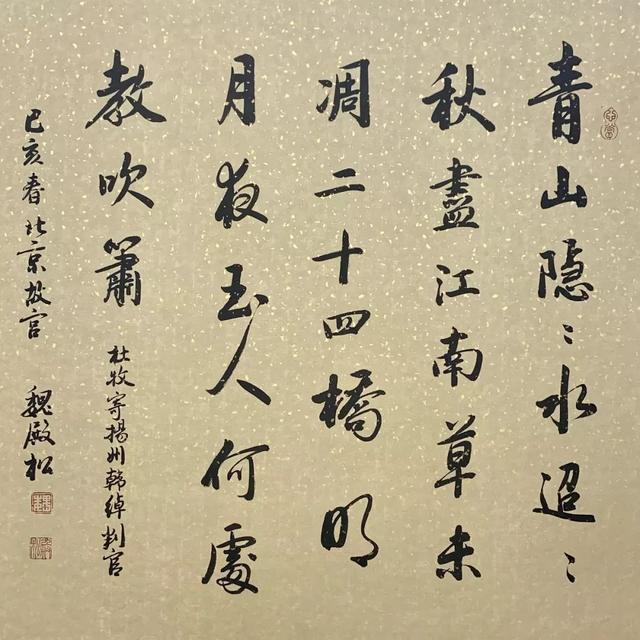 青山隐〻水迢〻
秋盡江南草未
凋二十四橋明
月夜玉人何處
教吹簫
杜牧寄揚州韩绰判官
己亥春北京故宫 魏殿松